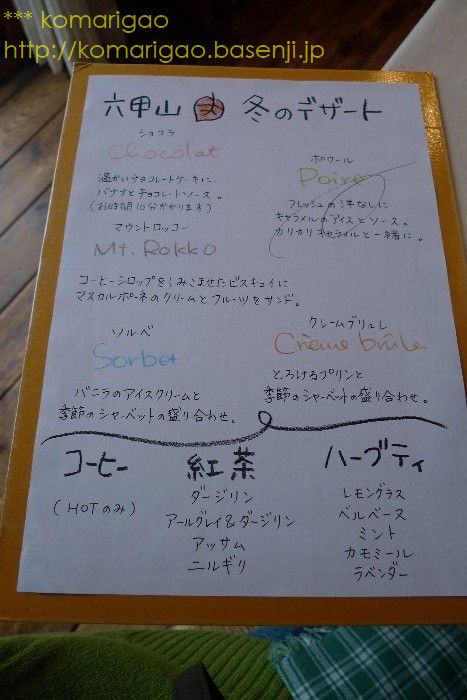 *** komarigao
http://komarigao.basenji.jp
六甲山 冬のデザート
ショコラ
Chocolat
温かいチョコレートケーキに
バナナとチョコレートソース。
(お時間10分かかります)
ポワール
Poire
フレッシュの洋なしに
キャラメルのアイスとソース。
カリカリキャラメルと一緒に。
マウントロッコー
Mt. Rokko
コーヒーシロップをしみこませたビスキュイに
マスカルポーネのクリームとフルーツをサンド。
ソルベ
Sorbet
バニラのアイスクリームと
季節のシャーベットの盛り合わせ。
クレームブリュレ
Crème brûlée
とろけるプリンと
季節のシャーベットの盛り合わせ。
コーヒー
(HOTのみ)
紅茶
ダージリン
アールグレイ&ダージリン
アッサム
ニルギリ
ハーブティ
レモングラス
ベルベーヌ
ミント
カモミール
ラベンダー